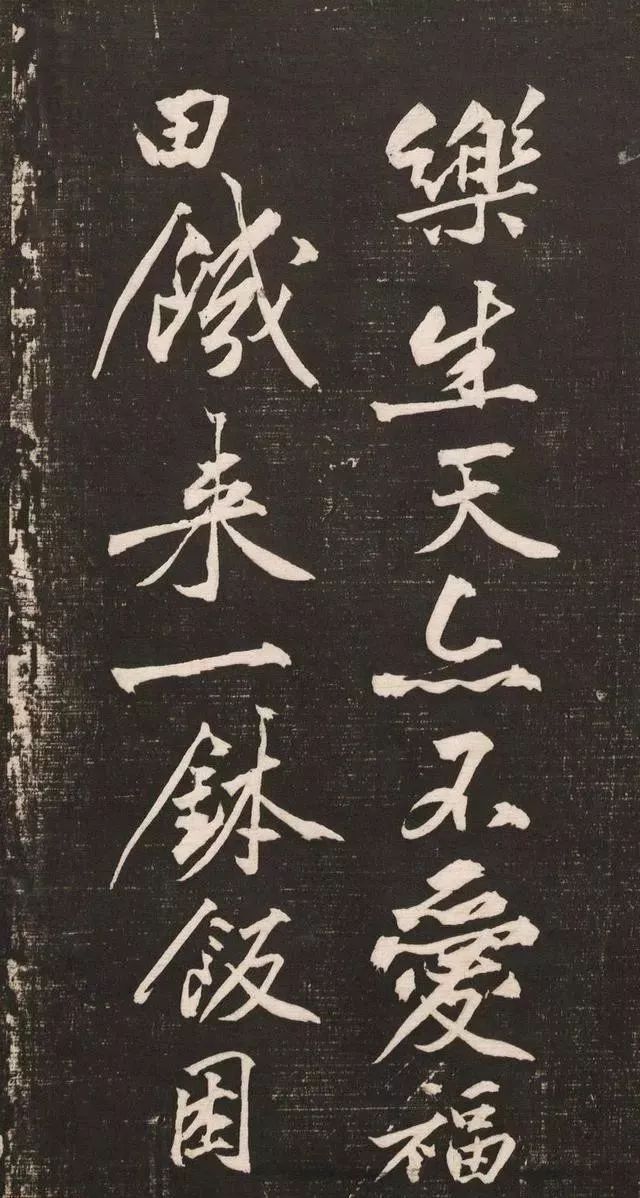 樂生天亦不愛福
田饑来一鉢飯困